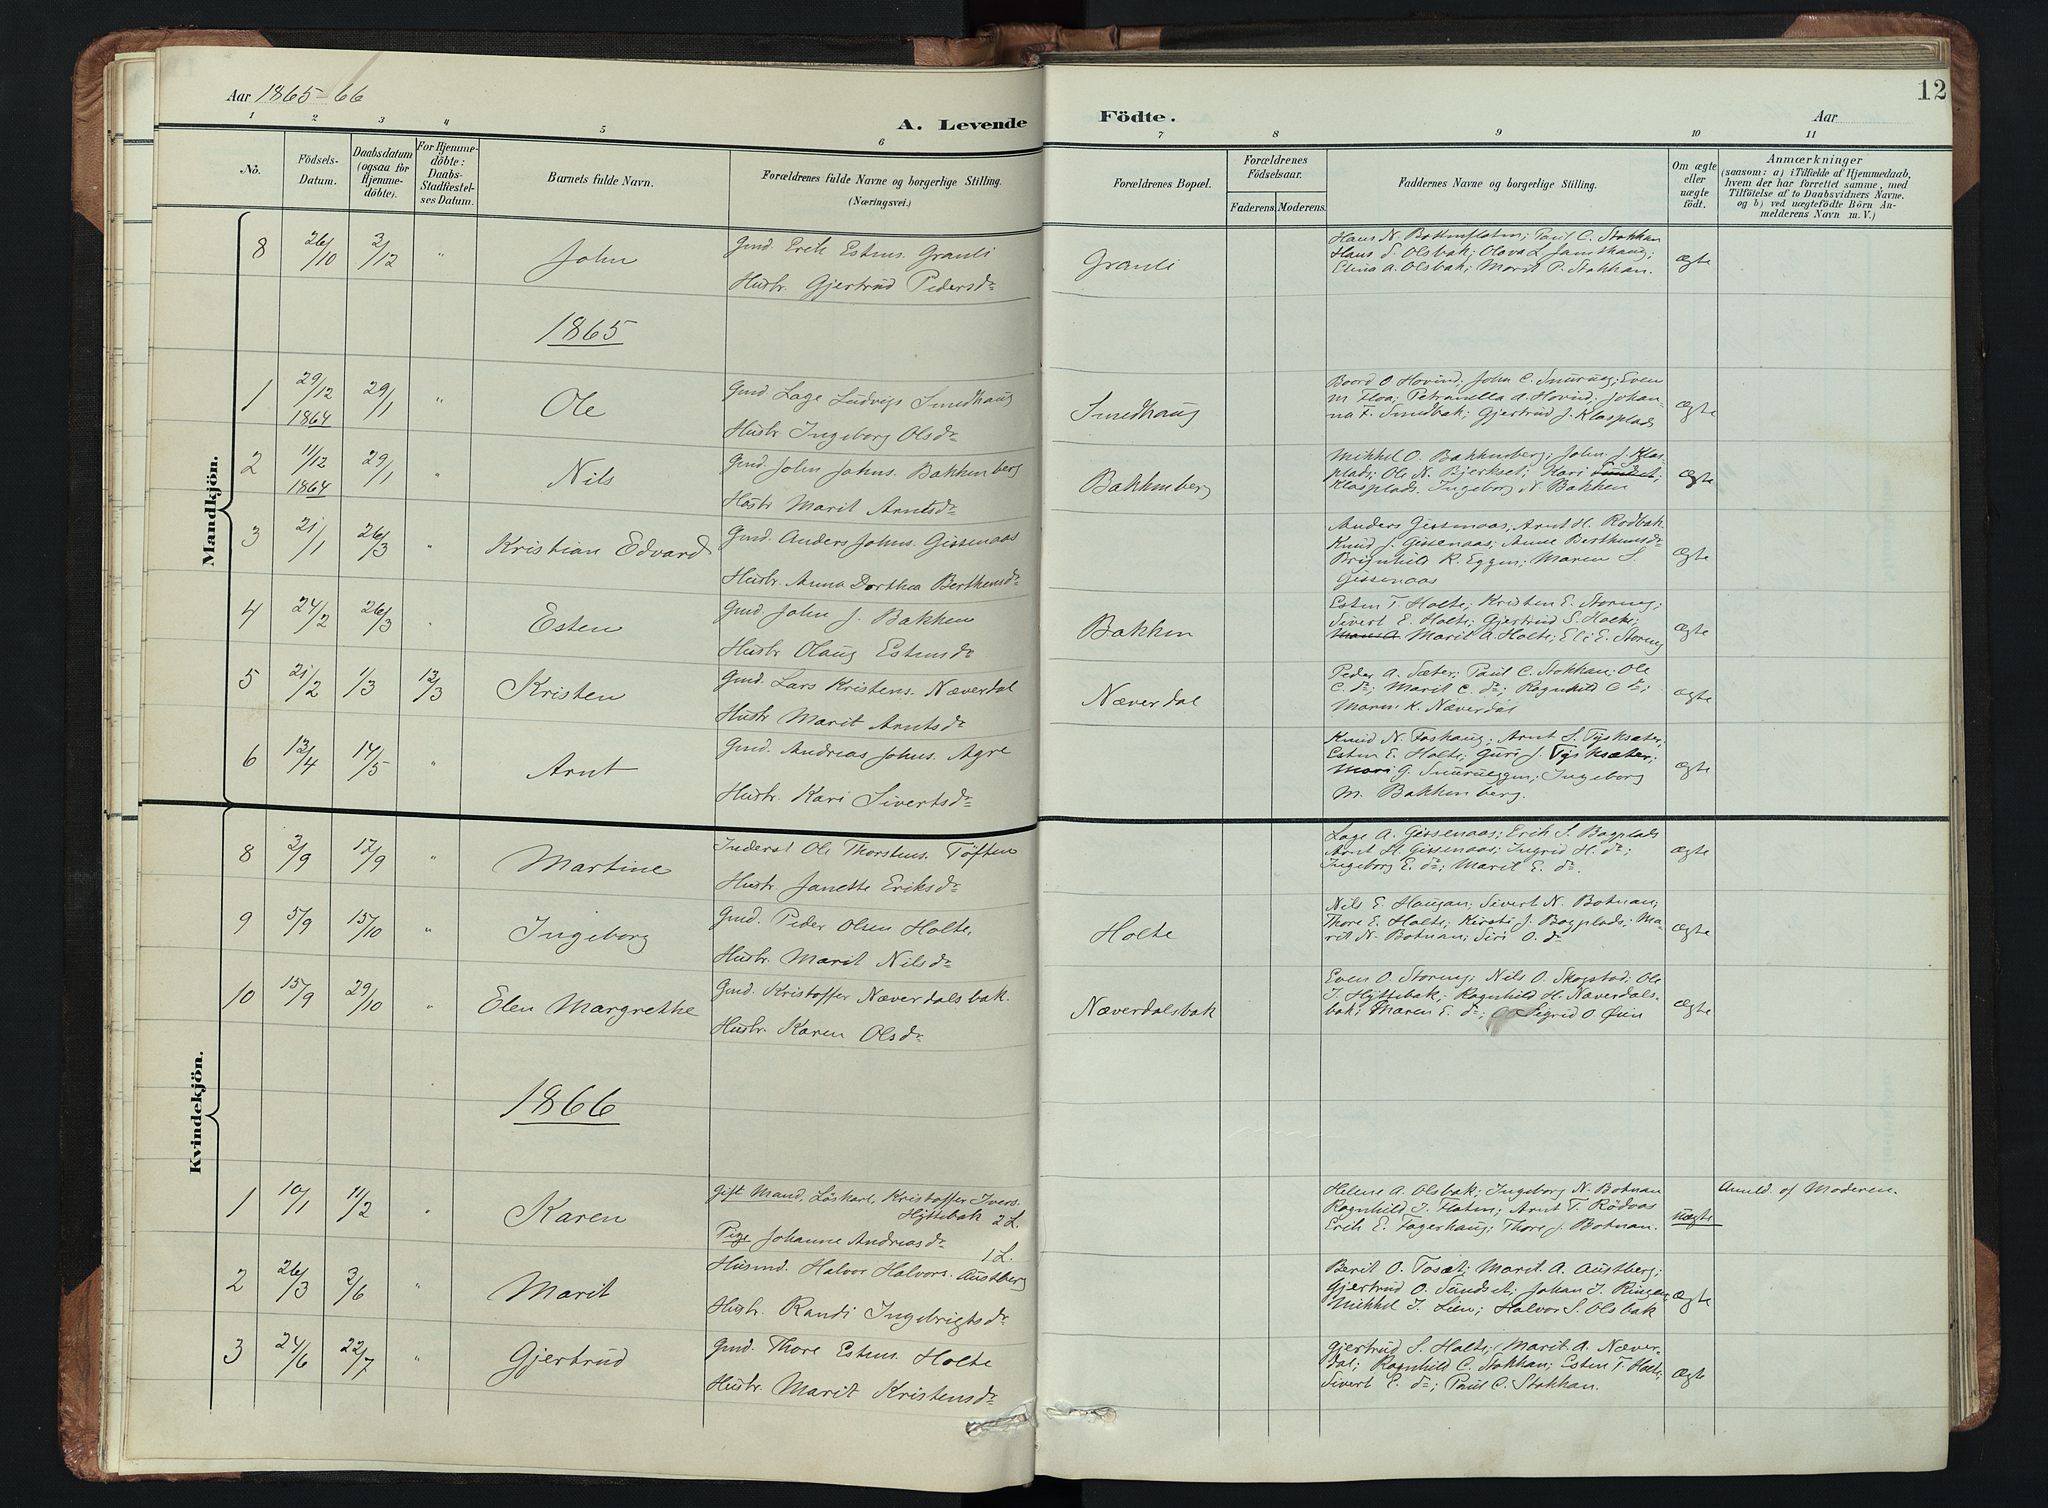 Aar 1865-66
A. Levende Födte.
Aar
12
1 2 3 4 5 6 7 8 9 10 11
No. Födsels-Datum. Daabsdatum (ogsaa for Hjemmedöbte). For Hjemmedöbte: Daabs-Stadfestelses Datum. Barnets fulde Navn. Forældrenes fulde Navne og borgerlige Stilling. (Næringsvei.) Forældrenes Bopæl. Forældrenes Födselsaar. Faderens. Moderens. Faddernes Navne og borgerlige Stilling. Om ægte eller uægte födt. Anmærkninger (saasom: a) i Tilfælde af Hjemmedaab, hvem der har forrettet samme, med Tilföielse af to Daabsvidners Navne. og b) ved uægtefödte Börn Anmelderens Navn m. V.)
Mandkjön.
8 26/10 3/12 " John Gmd. Erik Estens. Granli
Husbr. Gjertrud Pedersdr
Granli
Hans N. Bottenfloten; Paul C. Stokkan
Hans S. Olsbak; Olova L. Jamthaug;
Elina A. Olsbak; Marit P. Stokkan.
ægte
1865
1 29/12 1864 29/1 " Ole Gmd. Lage Ludvigs. Smedhaug
Husbr. Ingeborg Olsdr
Smedhaug
Boord O Hovind; John C. Snurueg; Even
M Floa; Petranella A. Hovind; Johan-
na F. Smedbak; Gjertrud J. Klasplads
ægte
2 11/12 1864 29/1 " Nils Gmd. John Johns. Bakkenberg
Husbr Marit Arntsdr
Bakkenberg
Mikkel O. Bakkenberg; John J. Klas-
plads; Ole N. Bjerkset; Kari Sundset;
Klasplads. Ingeborg N. Bakken
ægte
3 21/1 26/3 " Kristian Edvard Gmd. Anders Johns. Gissenaas
Husbr. Anna Dorthea Berthensdr
Anders Gissenaas, Arnt H. Rödbak
Knud J. Gissenaas; Anne Berthensdr
Brynhild R. Eggen; Maren S.
Gissenaas
ægte
4 24/2 26/3 " Esten Gmd. John J. Bakken
Husbr Olaug Estensdr
Bakken
Esten T. Holte; Kristen E. Storeng;
Sivert E. Holte; Gjertrud S. Holte;
Marit A. Holte; Eli E. Storeng
ægte
5 21/2 1/3 12/3 Kristen Gmd. Lars Kristens. Næverdal
Husbr Marit Arntsdr
Næverdal
Peder A. Sæter; Paul C. Stokkan; Ole
C. do; Marit C. do; Ragnhild C do;
Maren K. Næverdal
ægte
6 13/4 14/5 " Arnt Gmd. Andreas Johns. Agre
Husbr. Kari Sivertsdr
Knud N. Foshaug; Arnt S. Tysksæter;
Esten E. Holte; Guri J. Tysksæter;
Mari G. Snurueggen; Ingeborg
M. Bakkenberg.
ægte
Kvindekjön.
8 3/9 17/9 " Martine Inderst Ole Thorstens. Töften
Husbr. Janette Eriksdr
Lage A. Gissenaas; Erik S. Bagplads
Arnt H. Gissenaas; Ingrid H. do;
Ingeborg E. do; Marit E. do.
ægte
9 5/9 15/10 " Ingeborg Gmd. Peder Olsen Holte.
Husbr. Marit Nilsdr
Holte
Nils E. Haugan; Sivert N. Botnan;
Thore E. Holte; Kirsti J. Bagplads; Ma-
rit N. Botnan; Siri O. do
ægte
10 15/9 29/10 " Elen Margrethe Gmd. Kristoffer Næverdalsbak.
Husbr. Karen Olsdr
Næverdalsbak
Even O. Storeng; Nils O. Skogstad; Ole
I. Hyttebak; Ragnhild H. Næverdals-
bak; Maren E. do; Sigrid O Öien
ægte
1866
1 10/1 11/2 " Karen Gift Mand, Löskarl, Kristoffer Ivers.
Hyttebak 2 L.
Pige Johanne Andreasdr 1 L.
Helene A. Olsbak; Ingeborg N. Botnan
Ragnhild I. Floten; Arnt T. Rödvos
Erik E. Fagerhaug; Thore J. Botnan.
uægte
Anmeld. af Moderen.
2 26/3 3/6 " Marit Husmd. Halvor Halvors. Austberg
Husbr. Randi Ingebrigtsdr
Berit O. Tosæt; Marit A. Austberg;
Gjertrud O. Sundset; Johan I. Ringen
Mikkel I. Lien; Halvor S. Olsbak
ægte
3 24/6 22/7 " Gjertrud Gmd. Thore Estens. Holte
Husbr. Marit Kristensdr
Gjertrud S. Holte; Marit A. Næver-
dal; Ragnhild C. Stokkan; Esten T. Holte;
Sivert E. do; Paul C. Stokkan.
ægte